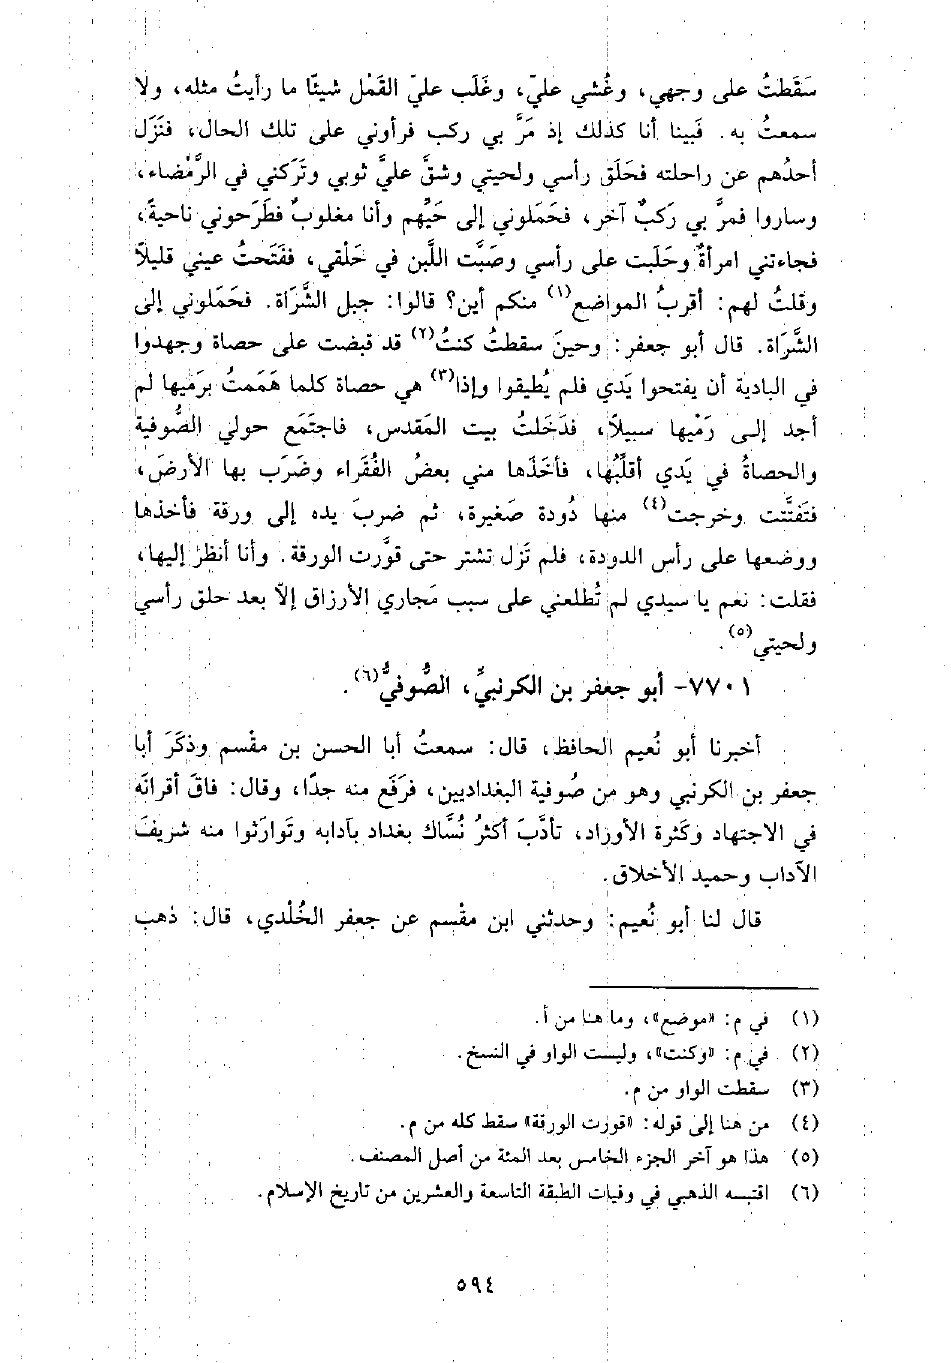 سَقَطتُ على وجهي، وغُشي عليّ، وغَلَب عليّ القَمْل شيئًا ما رأيتُ مثله، ولا
سمعتُ به. فَبينا أنا كذلك إذ مَرَّ بي ركب فرأوني على تلك الحال، فنَزَل
أحدُهم عن راحلته فحَلَق رأسي ولحيتي وشقَّ عليَّ ثوبي وتَرَكني في الرَّمْضاء،
وساروا فمرَّ بي رَكبٌ آخر، فحَمَلوني إلى حَيِّهم وأنا مغلوبٌ فطَرَحوني ناحيةً،
فجاءتني امرأةٌ وحَلَبت على رأسي وصَبَّت اللَّبن في حَلْقي، ففَتَحتُ عيني قليلاً
وقلتُ لهم: أقربُ المواضع(١) منكم أين؟ قالوا: جبل الشَّرَاة. فحَمَلوني إلى
الشَّرَاة. قال أبو جعفر: وحينَ سقطتُ كنتُ(٢) قد قبضت على حصاة وجهدوا
في البادية أن يفتحوا يَدي فلم يُطيقوا وإذا(٣) هي حصاة كلما هَمَمتُ برَميها لم
أجد إلى رَمْيها سبيلاً، فدَخَلتُ بيت المَقدس، فاجتَمَع حولي الصُّوفية
والحصاةُ في يَدي أقلِّبُها، فأخَذَها مني بعضُ الفُقَراء وضَرَب بها الأرضَ،
فتَفتَّتت وخرجت(٤) منها دُودة صَغيرة، ثم ضربَ يده إلى ورقة فأخذها
ووضعها على رأس الدودة، فلم تَزل تشتر حتى قوَّرت الورقة. وأنا أنظرُ إليها،
فقلت: نعم يا سيدي لم تُطلعني على سبب مَجاري الأرزاق إلاّ بعد حلق رأسي
ولحيتي(٥).
٧٧٠١- أبو جعفر بن الكرنبيِّ، الصُّوفيُّ(٦).
أخبرنا أبو نُعيم الحافظ، قال: سمعتُ أبا الحسن بن مقْسم وذكَرَ أبا
جعفر بن الكرنبي وهو من صُوفية البغداديين، فرَفَع منه جدًا، وقال: فاقَ أقرانَه
في الاجتهاد وكَثرة الأوراد، تأدَّبَ أكثرُ نُسَّاك بغداد بآدابه وتَوارَثوا منه شريفَ
الآداب وحميد الأخلاق.
قال لنا أبو نُعيم: وحدثني ابن مقْسم عن جعفر الخُلْدي، قال: ذهب
(١) في م: «موضع»، وما هنا من أ.
(٢) في م: «وكنت»، وليست الواو في النسخ.
(٣) سقطت الواو من م.
(٤) من هنا إلى قوله: «قورت الورقة» سقط كله من م.
(٥) هذا هو آخر الجزء الخامس بعد المئة من أصل المصنف.
(٦) اقتبسه الذهبي في وفيات الطبقة التاسعة والعشرين من تاريخ الإسلام.
٥٩٤